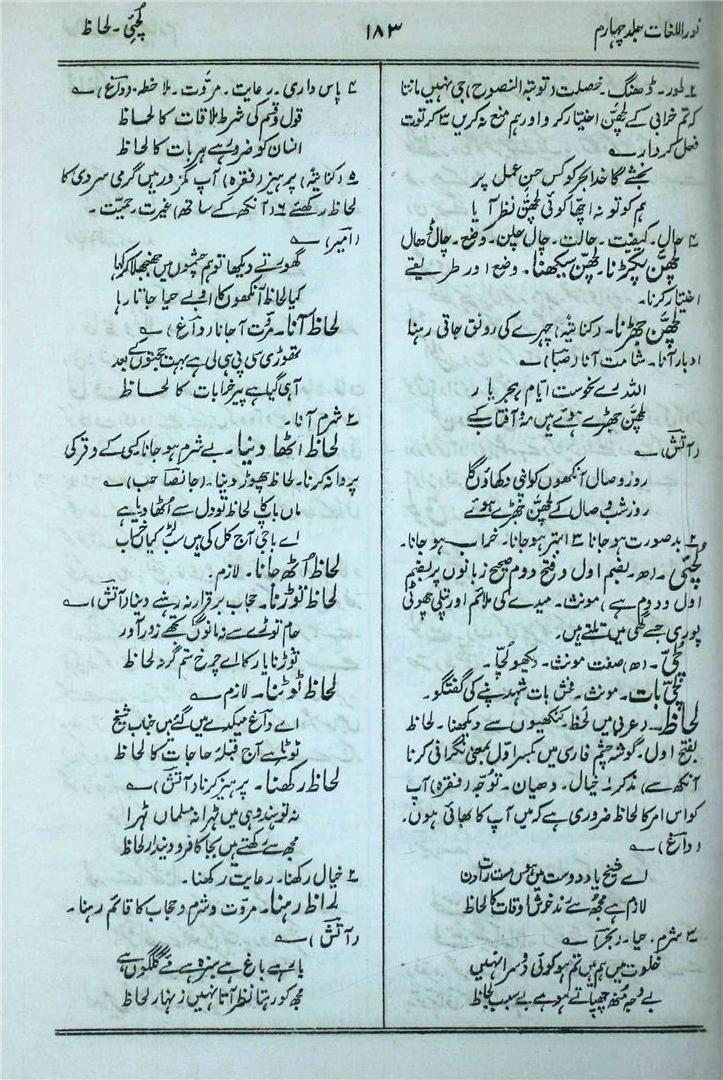 نور اللغات جلد چہارم
۱۸۳
لُچئی۔ لحاظ
۲۔ طور۔ ڈھنگ۔ خصلت (توبۃ النصوح) جی نہیں مانتا
کہ تم خرابی کے لچھن اختیار کرو اور ہم منع نہ کریں ۳ کرتوت
فعل کردار ؎
بخشے گا خدا بحر کو کس حسن عمل پر
ہم کو تو نہ اچھا کوئی لچھن نظر آیا
۴ چال۔ کیفیت۔ حالت۔ چال چلن۔ وضع۔ چال ڈھال
لچھن پکڑنا۔ لچھن سیکھنا۔ وضع اور طریقے
اختیار کرنا۔
لچھن جھڑنا۔ (کنایۃً) چہرے کی رونق جاتی رہنا
ادبار آنا۔ شامت آنا (صبا) ؎
اللہ رے نحوست ایام ہجر یار
لچھن جھڑے ہوئے ہیں مہ و آفتاب کے
(آتش) ؎
روز وصال آنکھوں کو اپنی دکھاؤں گا
روز شب وصال کے لچھن جھڑے ہوئے
۲ بدصورت ہوجانا ۳ ابتر ہوجانا۔ خراب ہوجانا۔
لُچئی۔ (ھ۔ بضم اول و فتح دوم صحیح زبانوں پر بضم
اول و دوم ہے) مونث۔ میدے کی ملائم اور پتلی چھوٹی
پوری جسے گھی میں تلتے ہیں۔
لُچّی۔ (ھ) صفت مونث۔ دیکھو لُچّا۔
لُچّی بات۔ مونث۔ فحش بات شہدپنے کی گفتگو۔
لحاظ۔ (عربی میں لحظ۔ کنکھیوں سے دیکھنا۔ لحاظ
بفتح اول۔ گوشۂ چشم فارسی میں بکسر اول بمعنی نگرانی کرنا
آنکھ سے) مذکر ۱۔ خیال۔ دھیان۔ توجہ (فقرہ) آپ
کو اس امر کا لحاظ ضروری ہے کہ میں آپ کا بھائی ہوں۔
(داغ) ؎
اے شیخ یاد دوست میں ہیں مست رات دن
لازم ہے مجھ سے رند خوش اوقات کا لحاظ
۳ شرم۔ حیا۔ (بحر) ؎
خلوت میں ہم ہیں تم ہو کوئی دوسرا نہیں
بے وجہ منھ چھپاتے ہو ہے بے سبب لحاظ
۴ پاس داری۔ رعایت۔ مروّت۔ ملاحظہ (داغ) ؎
قول و قسم کی شرط ملاقات کا لحاظ
انسان کو ضرور ہے ہر بات کا لحاظ
۵ (کنایۃً) پرہیز (فقرہ) آپ کمزور ہیں گرمی سردی کا
لحاظ رکھئے ۶ (آنکھ کے ساتھ) غیرت۔ حمیت۔
(امیر) ؎
گھورتے دیکھا تو ہم چشموں میں جھنجلا کر کہا
کیا لحاظ آنکھوں کا او بے حیا جاتا رہا
لحاظ آنا۔ مروت آجانا (داغ) ؎
تھوڑی سی پی ہی لی ہے بہت حجتوں کے بعد
آہی گیا ہے پیر خرابات کا لحاظ
۲ شرم آنا۔
لحاظ اٹھا دینا۔ بے شرم ہوجانا کسی کے وقر کی
پروا نہ کرنا۔ لحاظ چھوڑ دینا۔ (جانصاحب) ؎
ماں باپ کا لحاظ تو دل سے اُٹھا دیا ہے
اے باجی آج کل کی ہیں سب لڑکیاں خراب
لحاظ اُٹھ جانا۔ لازم۔
لحاظ توڑنا۔ حجاب برقرار نہ رہنے دینا (آتش) ؎
جام توڑے سے نہ مانوں گا تجھے زور آور
توڑنا یار کا اے چرخ ستم گر نہ لحاظ
لحاظ ٹوٹنا۔ لازم ؎
اے داغ میکدے میں گئے ہیں جناب شیخ
ٹوٹا ہے آج قبلۂ حاجات کا لحاظ
لحاظ رکھنا۔ پرہیز کرنا (آتش) ؎
نہ تو ہندو ہی میں ٹھہرا نہ مسلماں ٹھہرا
مجھ سے رکھتے ہیں بجا کافر و دیندار لحاظ
۲ خیال رکھنا۔ رعایت رکھنا۔
لحاظ رہنا۔ مروت و شرم و حجاب کا قائم رہنا۔
(آتش) ؎
یار ہے باغ ہے سبزہ ہے مئے گلگوں ہے
مجھ کو رہتا نظر آتا نہیں زنہار لحاظ